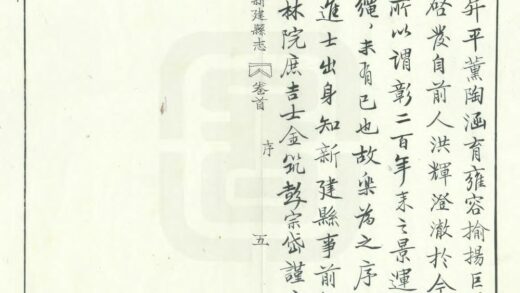 昇平薰陶涵育雍容揄揚巨
啓發自前人洪輝澄澈於今
所以謂彰二百年来之景運
繩，未有已也故樂為之序
進士出身知新建縣事前
林院庶吉士金筑彭宗岱謹
新建縣志 卷首 序 五